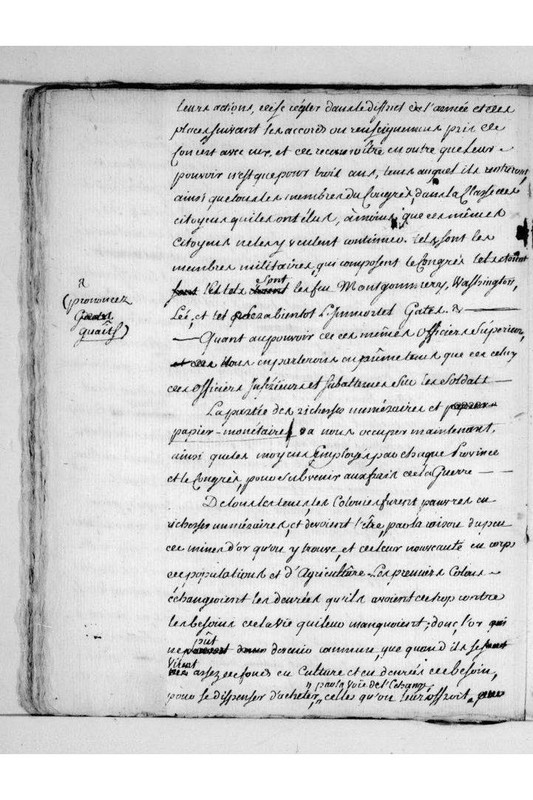 leurs actions, et se régler dans le district de l'armée et des
places suivant les accords ou renseignemens pris de
Concert avec eux, et de reconnoître en outre que leur
pouvoir n'est que pour trois ans, tems auquel ils rentreront
ainsi que tous les membres du Congrès, dans la Classe des
citoyens qui les ont élus, à moins que ces mêmes
citoyens ne les y veulent continuer. tels sont les
membres militaires, qui composent le Congrès tels étoient
et tels sont les feu Montgommery, Washington,
a
(prononcez
guaits)
Lée, et tel sera bientot L'Immortel Gates. &
— Quant au pouvoir de ces mêmes Officiers Supérieurs,
nous en parlerons en même tems que de celuy
des Officiers Inférieurs et subalternes Sur les Soldats —
La partie des richesses numéraires et
papier-monétaires va nous occuper maintenant,
ainsi que les moyens Employés par chaque Province
et le Congrès, pour subvenir aux frais de la Guerre —
De tous les tems, les Colonies furent pauvres en
richesses numéraires, et devoient l'être, par la raison du peu
de mines d'or qu'on y trouve, et de leur nouveauté en corps
de populations et d'Agriculture. Les premiers Colons
échangeoient les denrées qu'ils avoient de trop contre
les besoins de la vie qui leur manquoient; donc l'or
ne pût devenir commun, que quand ils se
virent assez de fonds en Culture et en denrées de besoin,
pour se dispenser d'acheter, "par la voie de l'Echange" celles qu'on leur offroit,